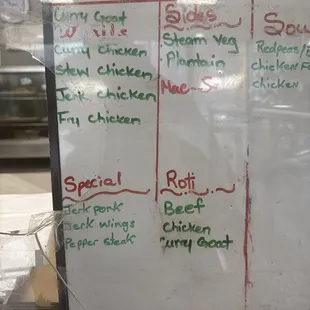 Curry Goat
Curry Chicken
Stew Chicken
Jerk Chicken
Fry Chicken
Sides
Steam Veg
Plantain
Mac
Sou
Redpees/
Chicken F
chicken
Special
Jerk pork
Jerk wings
Pepper steak
Roti
Beef
Chicken
Curry Goat